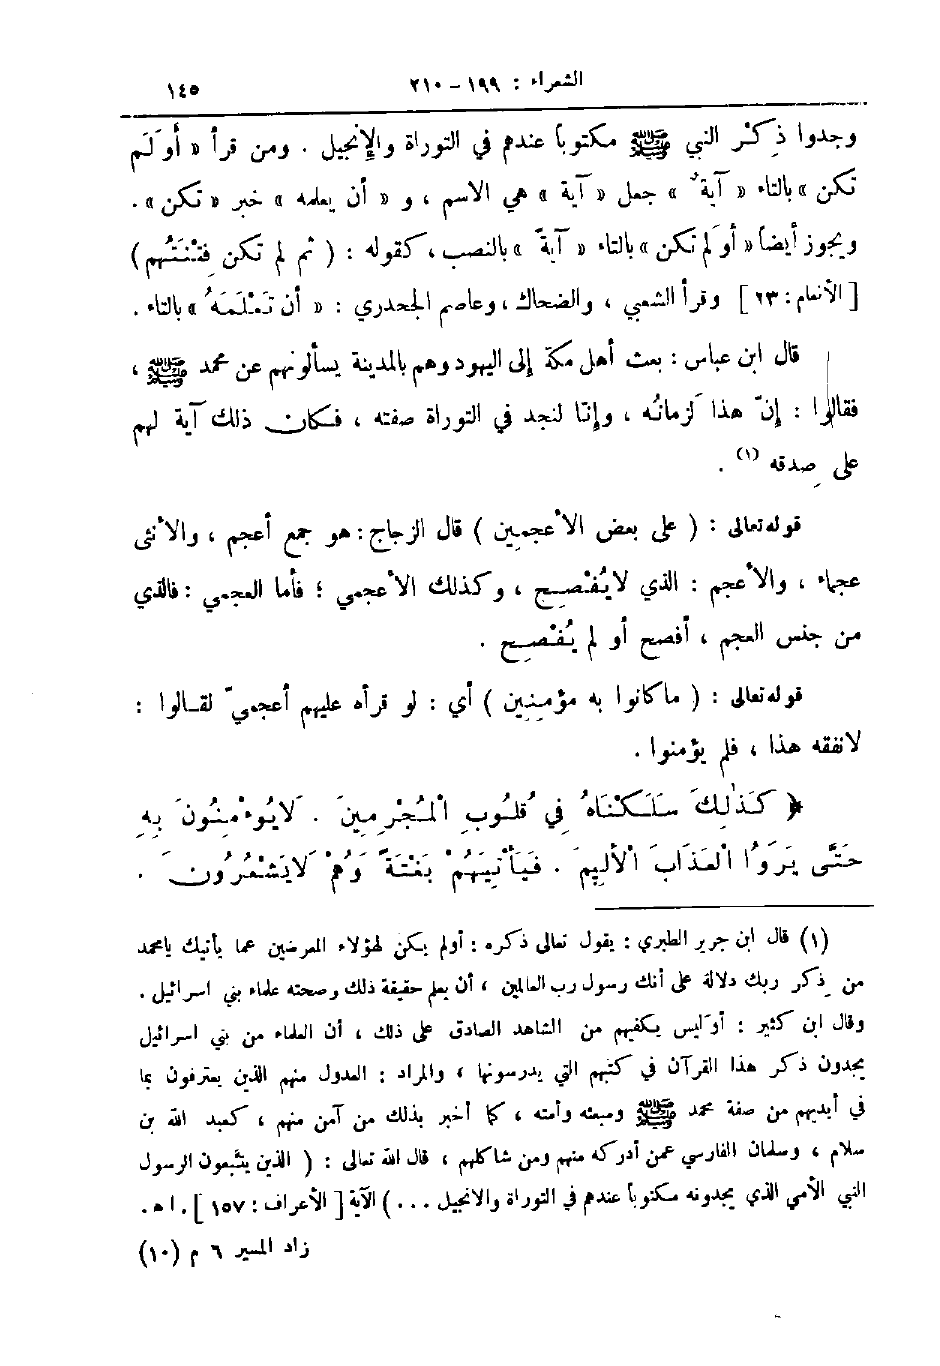 الشعراء : ١٩٩ – ٢١٠ ١٤٥
وجدوا ذِكْر النبي ﷺ مكتوباً عندهم في التوراة والإنجيل . ومن قرأ « أَوَلَم
تكن » بالتاء « آيةٌ » جعل « آية » هي الاسم ، و « أن يعلمه » خبر « تكن » .
ويجوز أيضاً « أوَلم تكن » بالتاء « آيةً » بالنصب ، كقوله : ( ثم لم تكن فِتْنَتَُهم )
[ الأنعام : ٢٣ ] وقرأ الشعبي ، والضحاك ، وعاصم الجحدري : « أن تَعْلَمَهُ » بالتاء .
قال ابن عباس : بعث أهل مكة إلى اليهود وهم بالمدينة يسألونهم عن محمد ﷺ ،
فقالوا : إنّ هذا لَزمانُه ، وإِنّا لنجد في التوراة صفته ، فكان ذلك آية لهم
على صِدقه (١) .
قوله تعالى : ( على بعض الأعجمِين ) قال الزجاج : هو جمع أعجم ، والأنثى
عجماء ، والأعجم : الذي لا يُفْصِح ، وكذلك الأعجمي ؛ فأما العجمي : فالذي
من جنس العجم ، أفصح أو لم يُفْصِح .
قوله تعالى : ( ما كانوا به مؤمنِين ) أي : لو قرأه عليهم أعجميّ لقالوا :
لا نفقه هذا ، فلم يؤمنوا .
﴿ كَذٰلِكَ سَلَكْنَاهُ فِي قُلُوبِ الْمُجْرِمِينَ . لَا يُوءْمِنُونَ بِهِ
حَتَّى يَرَوُا الْعَذَابَ الْأَلِيمَ . فَيَأْتِيَهُمْ بَغْتَةً وَهُمْ لَا يَشْعُرُونَ .
(١) قال ابن جرير الطبري : يقول تعالى ذكره : أولم يكن لهؤلاء المعرضين عما يأتيك يا محمد
من ذِكر ربك دلالة على أنك رسول رب العالمين ، أن يعلم حقيقة ذلك وصحته علماء بني اسرائيل .
وقال ابن كثير : أوَليس يكفيهم من الشاهد الصادق على ذلك ، أن العلماء من بني اسرائيل
يجدون ذكر هذا القرآن في كتبهم التي يدرسونها ، والمراد : العدول منهم الذين يعترفون بما
في أيديهم من صفة محمد ﷺ ومبعثه وأمته ، كما أخبر بذلك من آمن منهم ، كعبد الله بن
سلام ، وسلمان الفارسي عمن أدركه منهم ومن شاكلهم ، قال الله تعالى : ( الذين يتَّبعون الرسول
النبي الأمي الذي يجدونه مكتوباً عندهم في التوراة والانجيل ... ) الآية [ الأعراف : ١٥٧ ] . ا ه .
زاد المسير ٦ م (١٠)